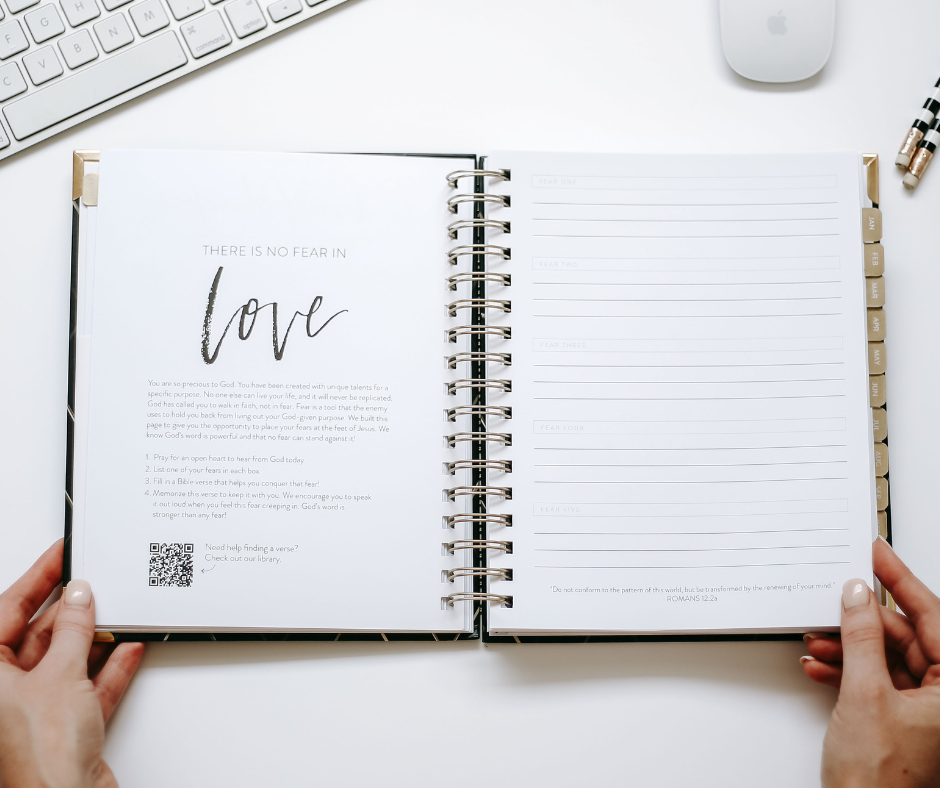 F G H
C V B N M
command
option
THERE IS NO FEAR IN
love
You are so precious to God. You have been created with unique talents for a
specific purpose. No one else can live your life, and it will never be replicated.
God has called you to walk in faith, not in fear. Fear is a tool that the enemy
uses to hold you back from living out your God-given purpose. We built this
page to give you the opportunity to place your fears at the feet of Jesus. We
know God's word is powerful and that no fear can stand against it!
1. Pray for an open heart to hear from God today.
2. List one of your fears in each box.
3. Fill in a Bible verse that helps you conquer that fear!
4. Memorize this verse to keep it with you. We encourage you to speak
it out loud when you feel this fear creeping in. God's word is
stronger than any fear!
Need help finding a verse?
Check out our library.
FEAR ONE
FEAR TWO
FEAR THREE
FEAR FOUR
FEAR FIVE
"Do not conform to the pattern of this world, but be transformed by the renewing of your mind."
ROMANS 12:2a
JAN
FEB
MAR
APR
MAY
JUN
JUL
AUG
SEP